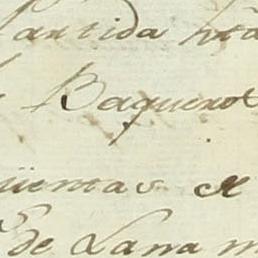 Partida
Baquerot
üentas el
de Lana m